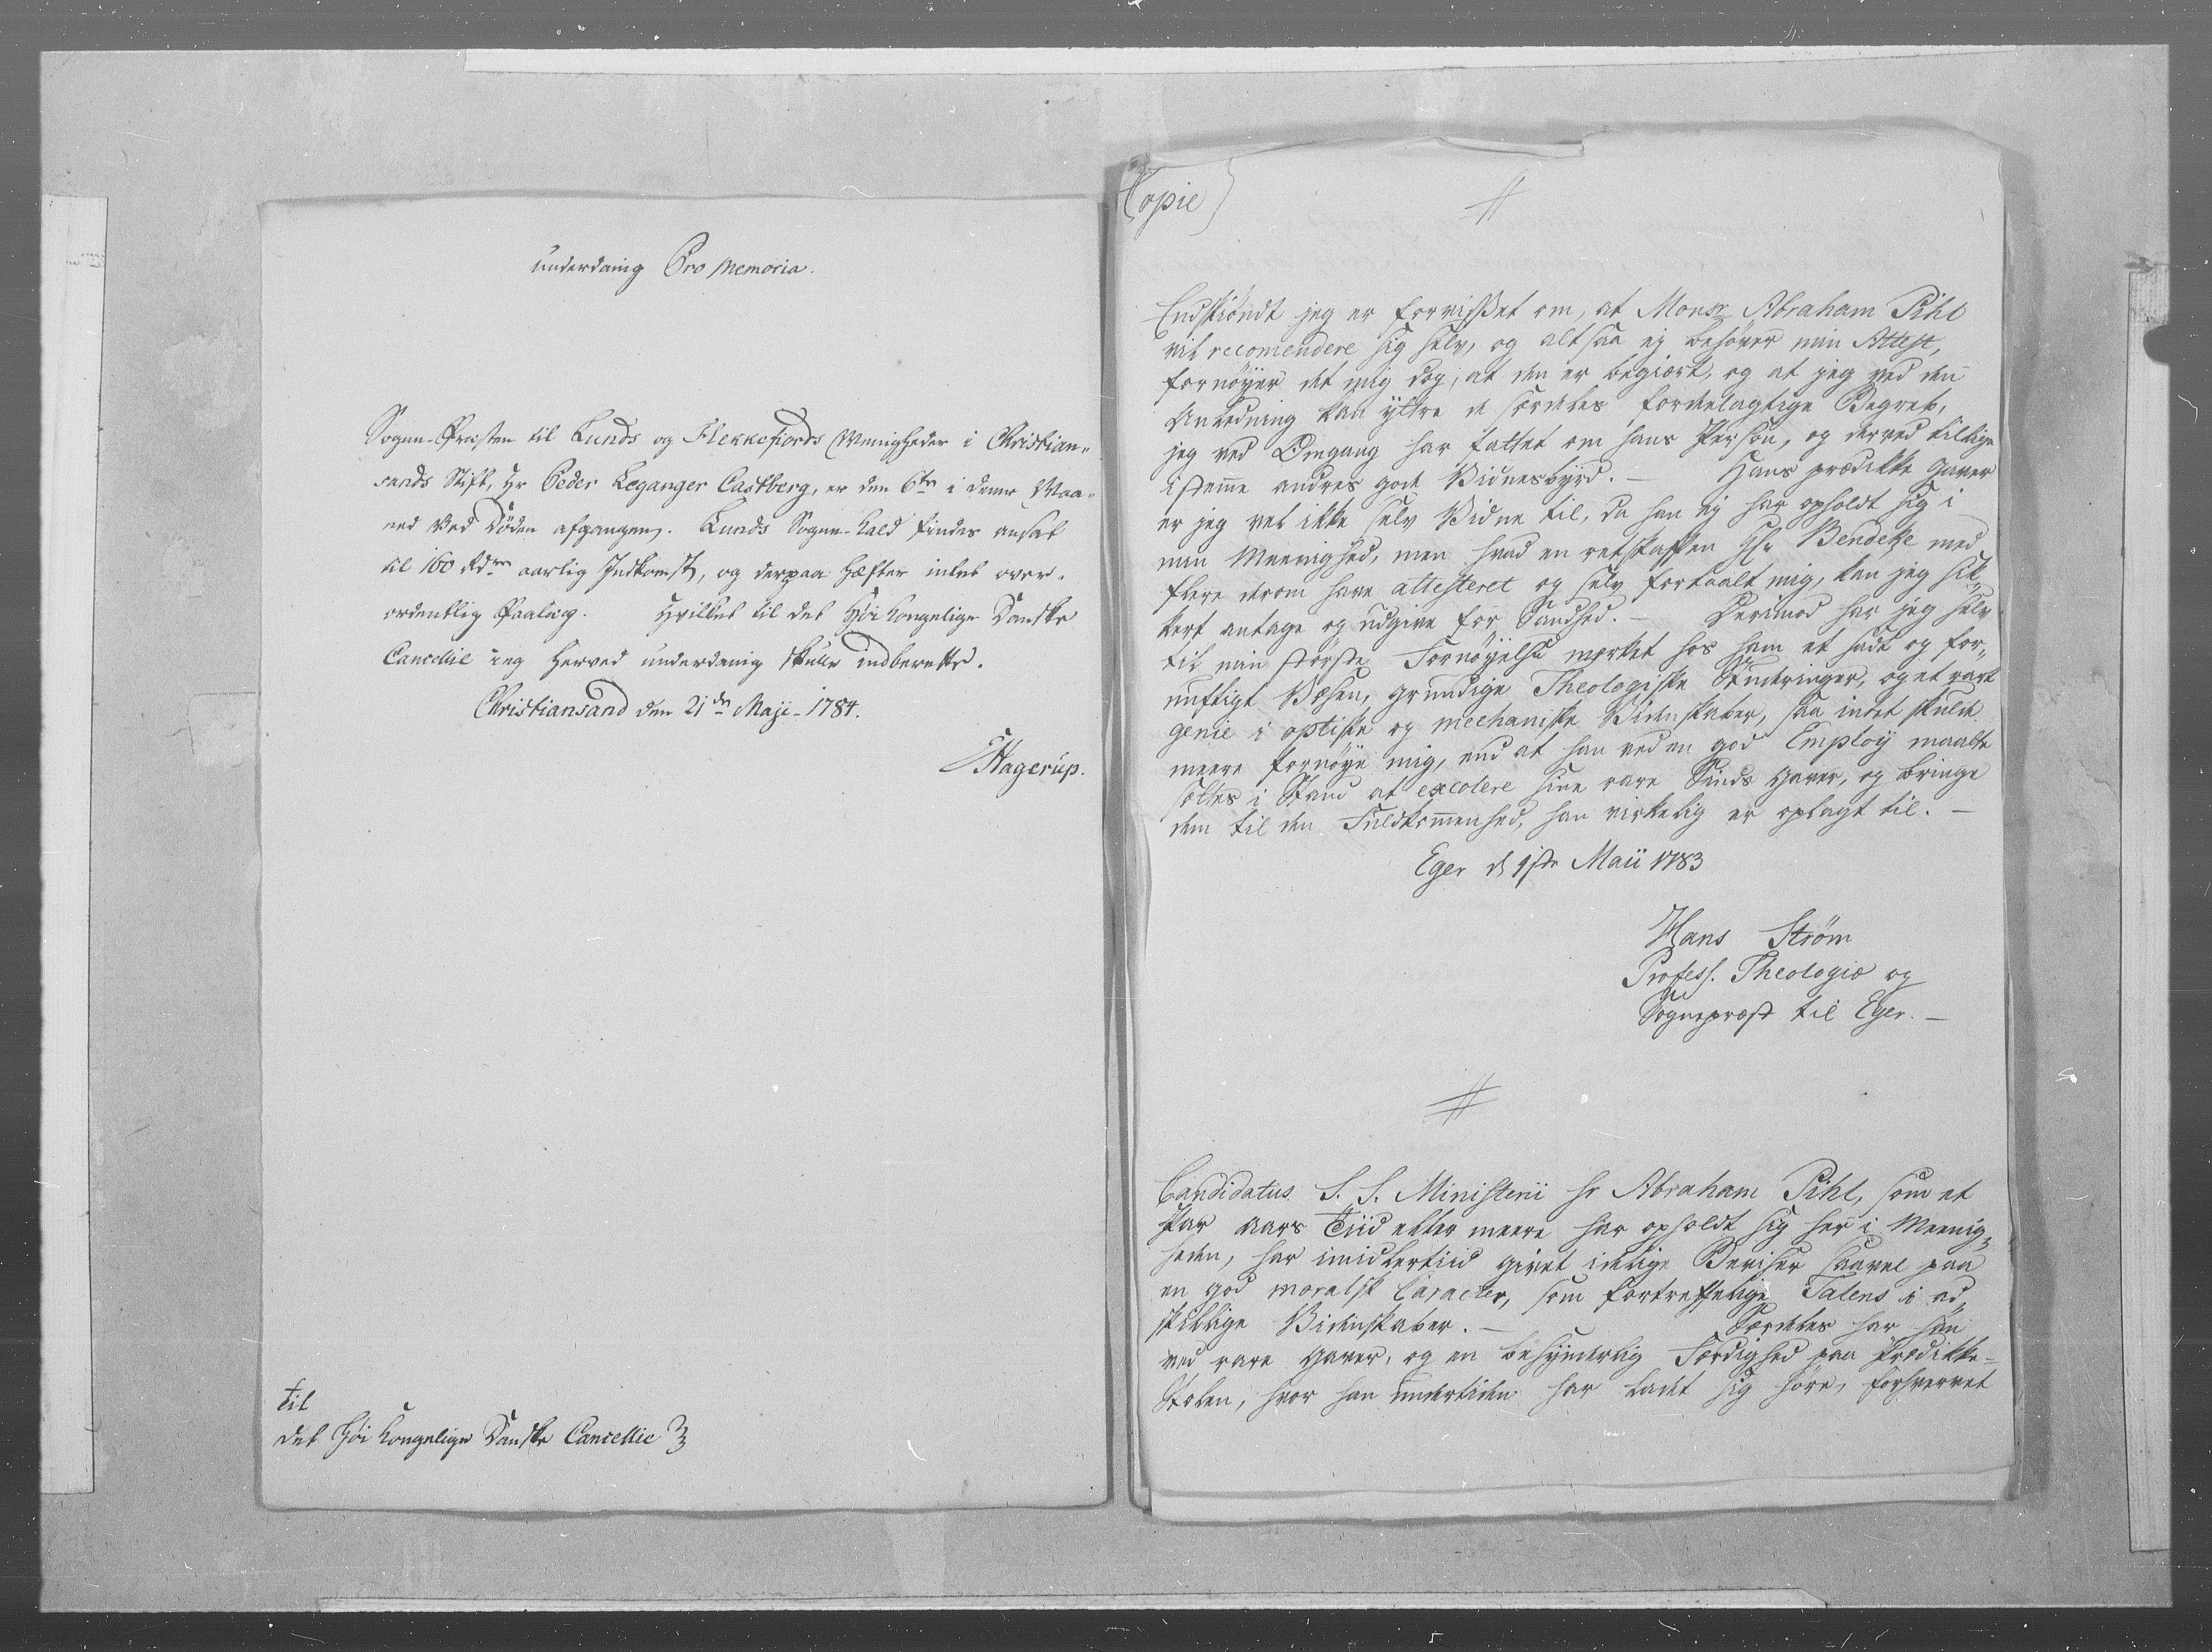 underdanig Pro Memoria.
Sogne-Præsten til Lunds og Flekkefiords Menigheder i Christian-
sands Stift, Hr Peder Leganger Castberg, er den 6te i denne Maa-
ned ved Døden afgangen. Lunds Sogne-Kald findes ansat
til 160 Rdr aarlig Indkomst, og derpaa hæfter intet over-
ordentlig Paalæg. Hvilket til det Høi Kongelige Danske
Cancellie ieg herved underdanig skulle indberette.
Christiansand den 21de Maji 1784.
Hagerup.
til
det Høi Kongelige Danske Cancellie
Copie
Endskiöndt jeg er forvisset om, at Monsr Abraham Pihl
vil recomendere sig selv, og altsaa ej behöver min Attest,
fornöyer det mig dog, at den er begiært, og at jeg ved den
Anledning kan yttre de særdeles fordelagtige Begreb,
jeg ved Omgang har fattet om hans Person, og derved tillige
istemme andres gode Vidnesbyrd. – Hans prædikke Gaver
er jeg vel ikke selv Vidne til, da han ej har opholdt sig i
min Meenighed, men hvad en retskaffen Hr Bendeke med
flere derom have attesteret og selv fortaalt mig, kan jeg sik-
kert antage og udgive for Sandhed. – Derimod har jeg selv
til min störste Fornöyelse mærket hos ham et sadt og for-
nuftigt Væsen, grundige Theologiske Studeringer, og et rart
genie i optiske og mechaniske Videnskaber, saa intet skulde
meere fornöye mig, end at han ved en god Employ maatte
sættes i Stand at excolere sine rare Sinds Gaver, og bringe
dem til den Fuldkommenhed, han virkelig er oplagt til. –
Eger d 1ste Maii 1783
Hans Ström
Profess. Theologiæ og
Sognepræst til Eger. –
Candidatus S. S. Ministerii Hr Abraham Pihl, som et
Par Aars Tiid eller meere har opholdt sig her i Meenig-
heden, har imidlertiid givet idelige Beviser saavel paa
en god moralsk Caracter, som fortreffelige Talens i ad-
skillige Videnskaber. – Særdeles har han
ved rare Gaver, og en besynderlig Færdighed paa Prædikke-
Stolen, hvor han undertiden har ladet sig höre, forhvervet